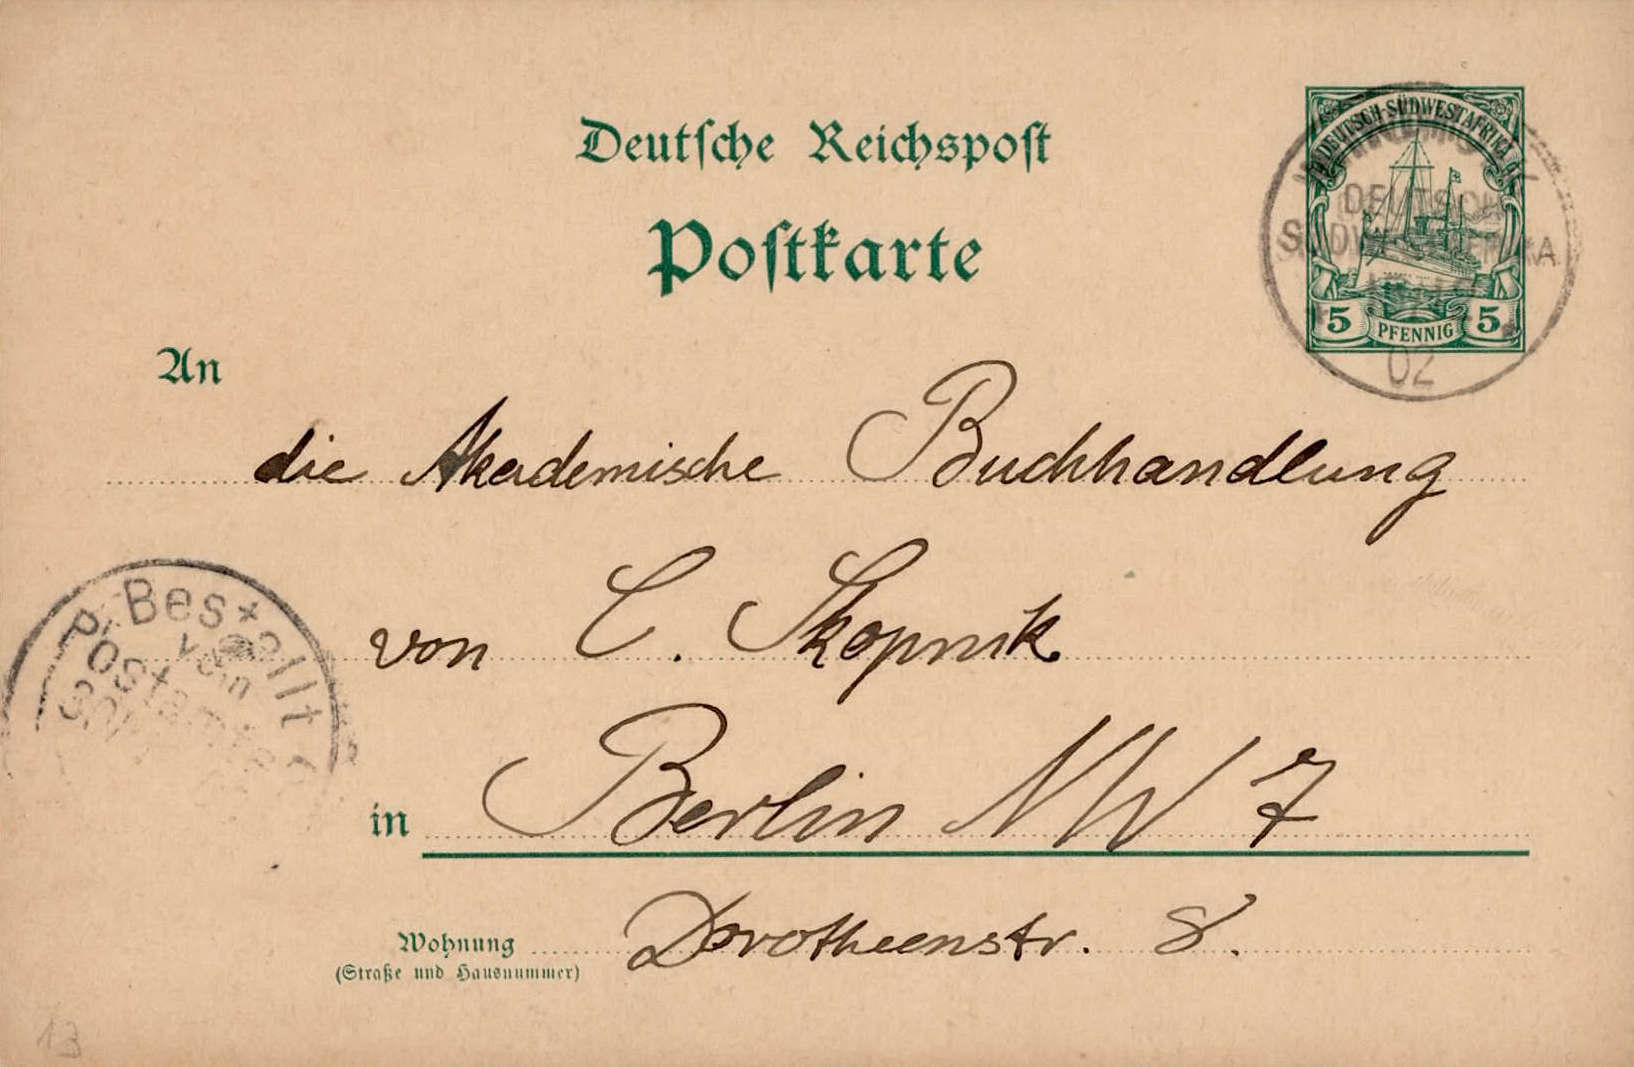 Deutsche Reichspost
Postkarte
DEUTSCH-SÜDWESTAFRIKA
5 PFENNIG 5
DEUTSCH
SÜDWESTAFRIKA
02
An
die Akademische Buchhandlung
von C. Skopnik
Bestellt
vom
Postamte
in Berlin NW 7
Wohnung Dorotheenstr. 8.
(Straße und Hausnummer)
13